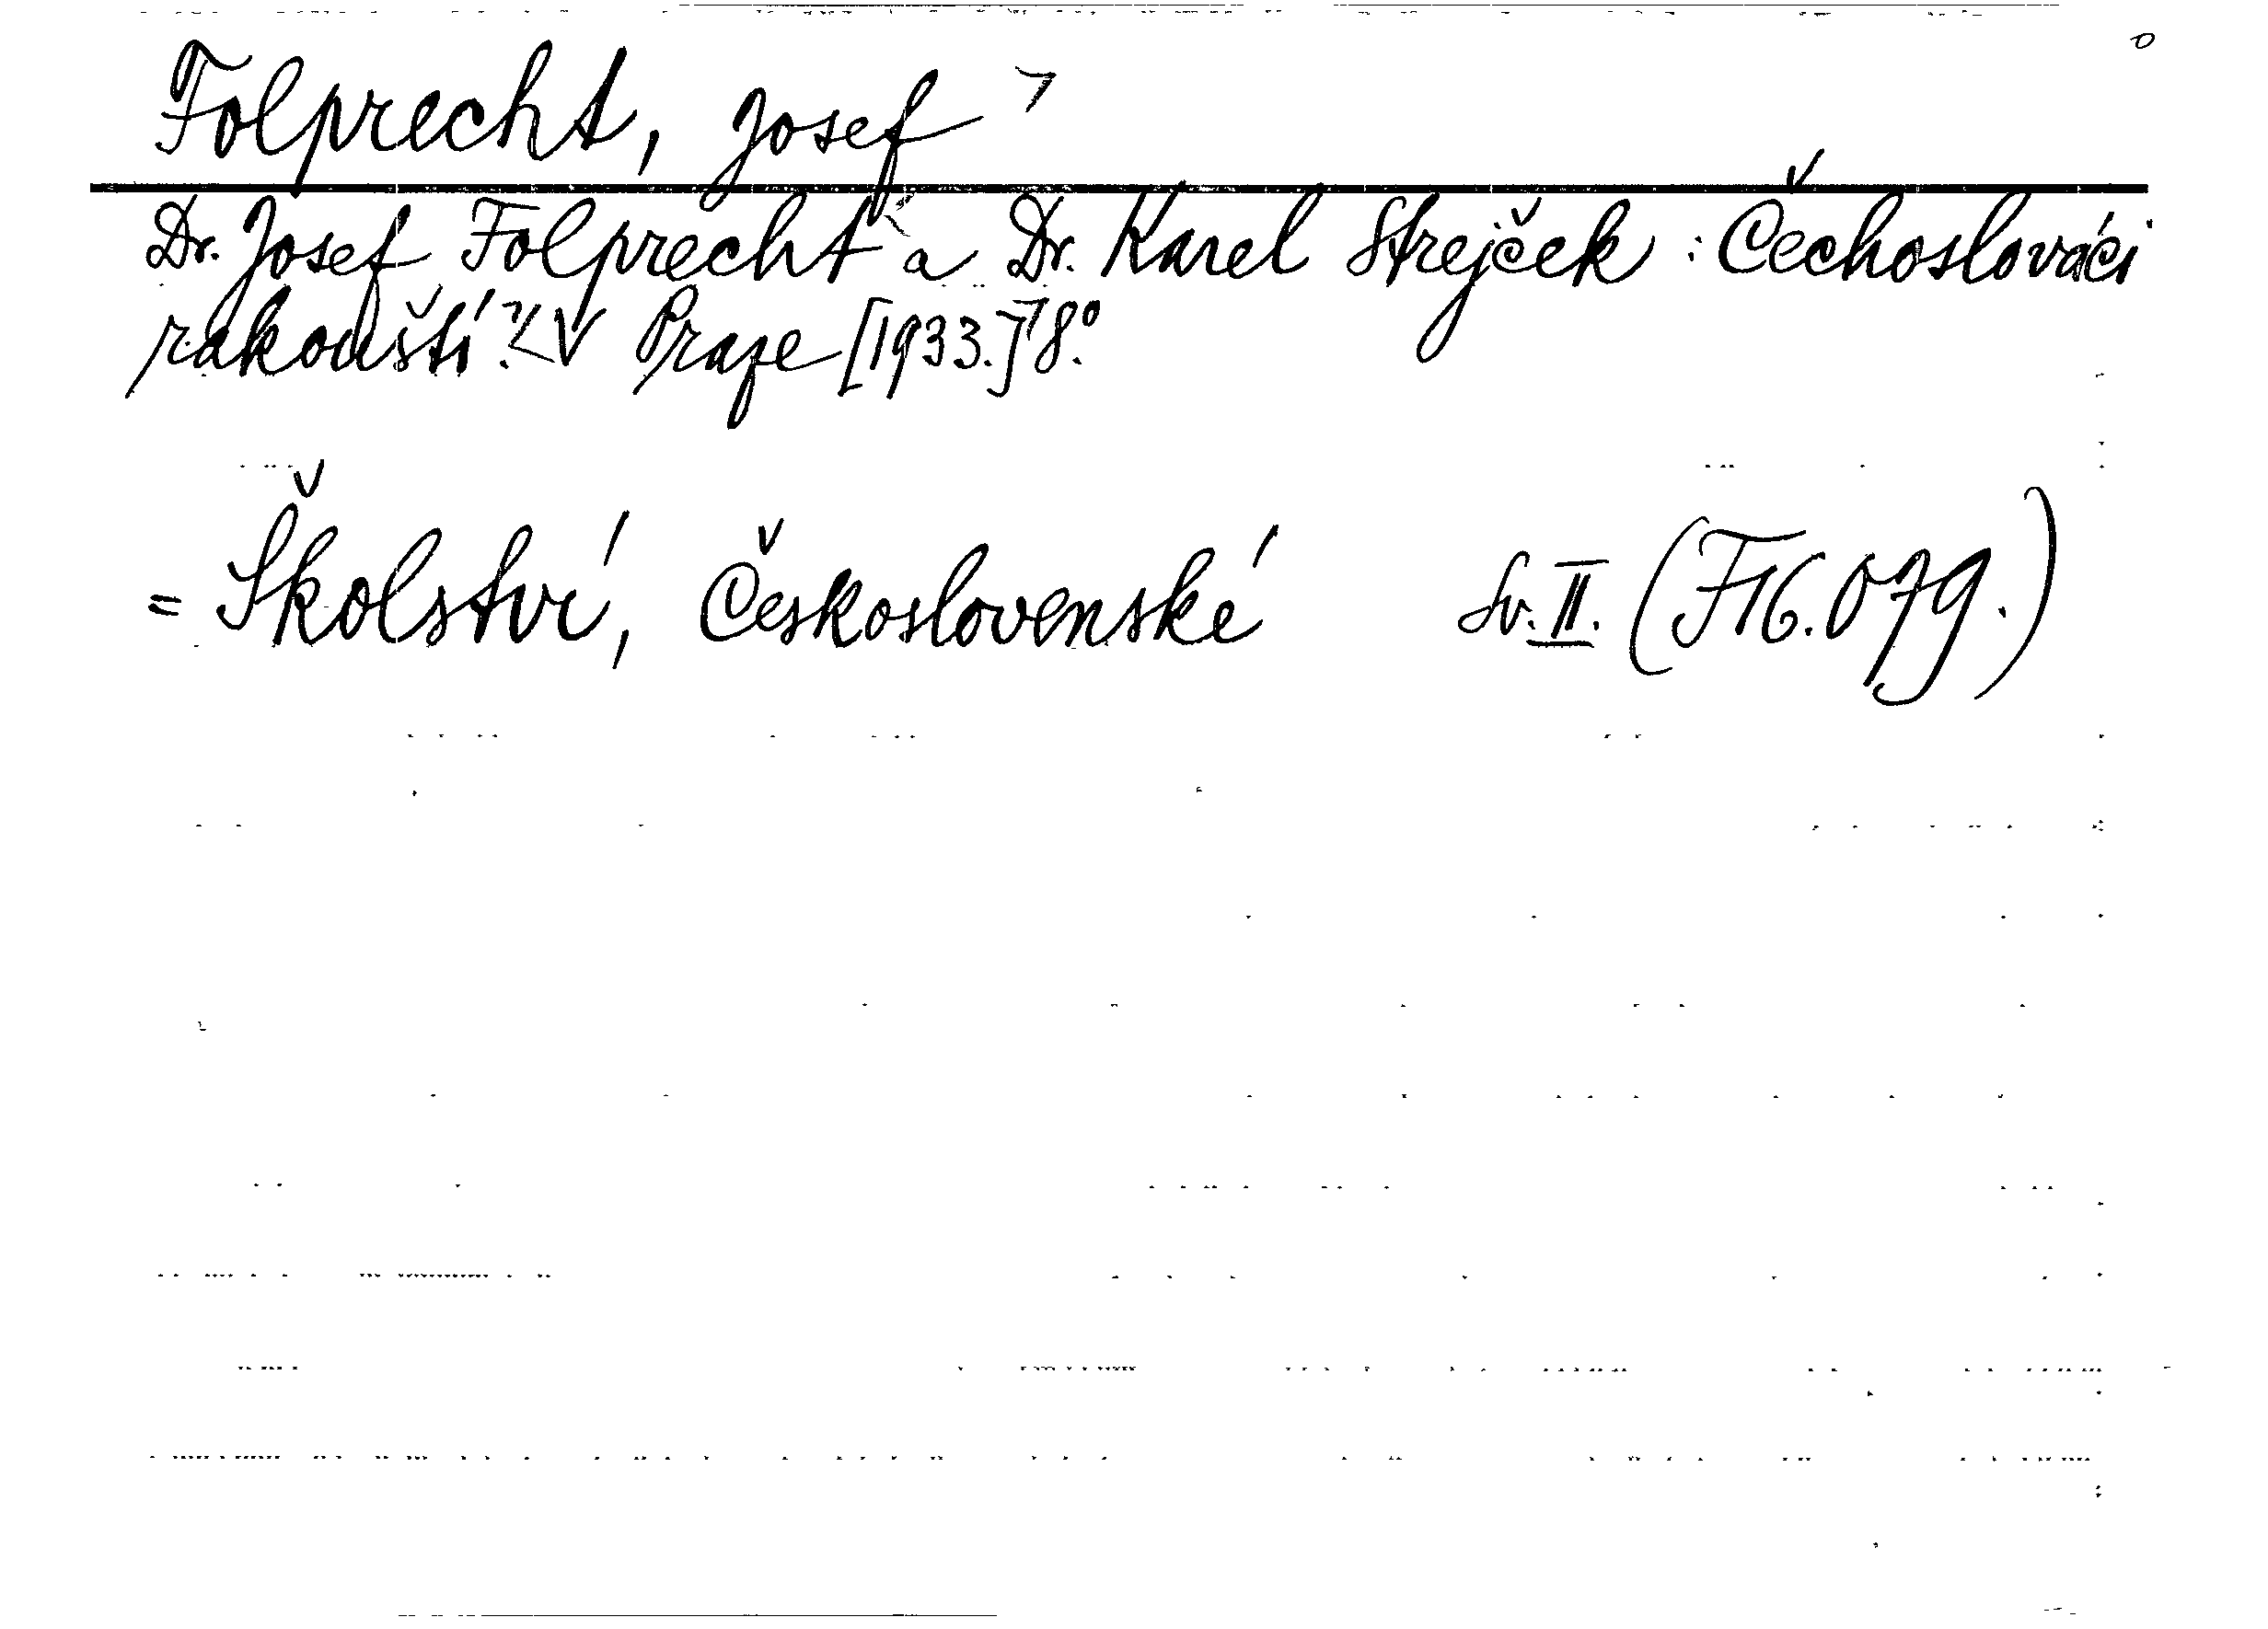 Folprecht, Josef
Dr. Josef Folprecht a Dr. Karel Strejček : Čechoslováci
rakouští. V Praze [1933.] 8.º
= Školství, Československé Sv. II. (F16.079.)